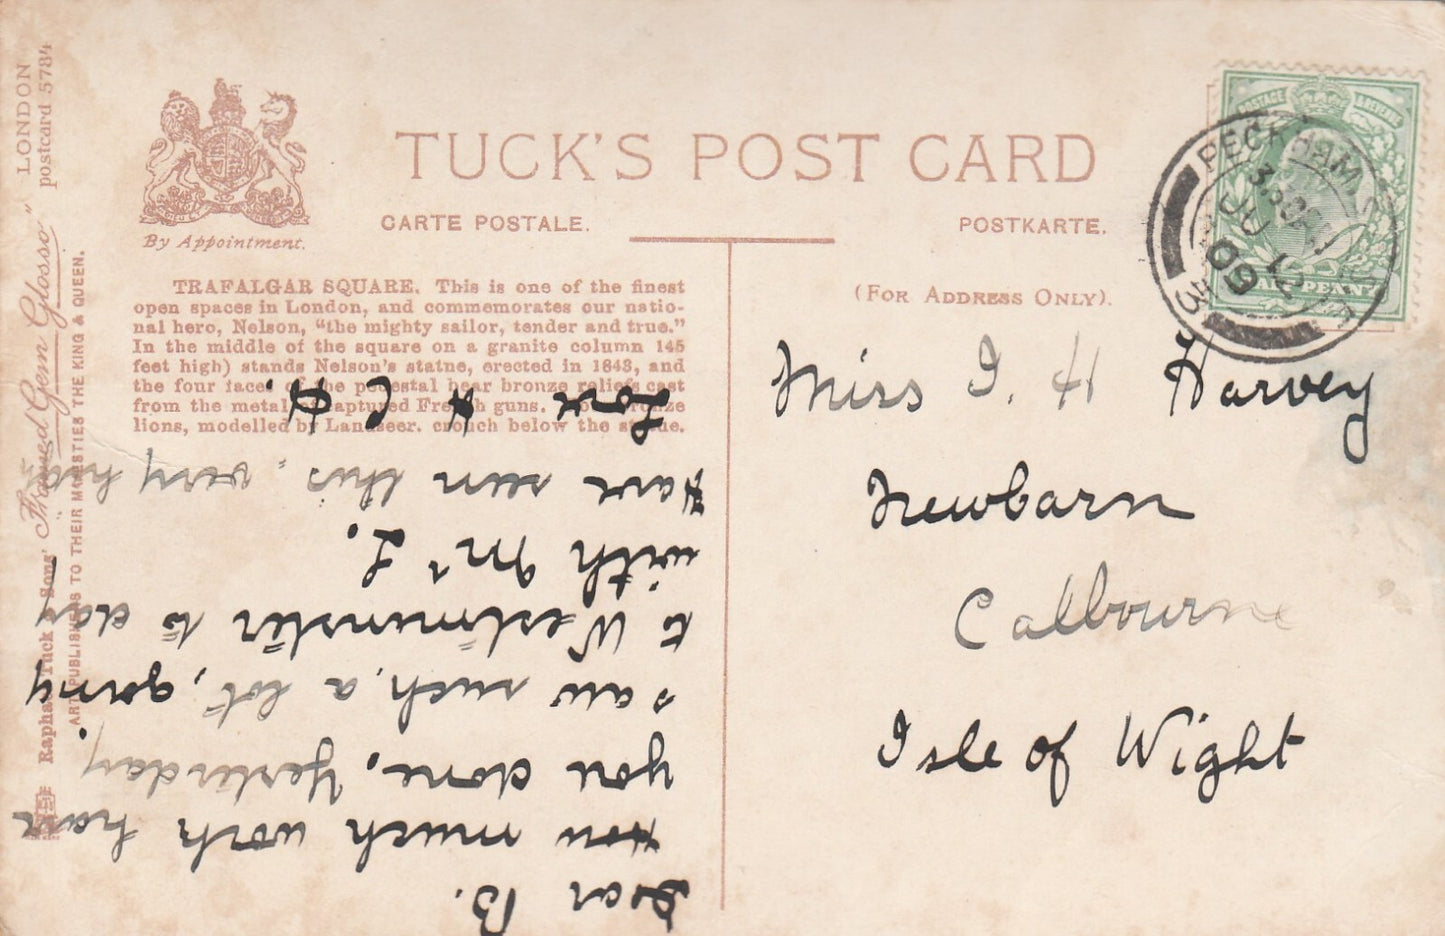 TUCK'S POST CARD
CARTE POSTALE.
POSTKARTE.
By Appointment.
(FOR ADDRESS ONLY).
TRAFALGAR SQUARE. This is one of the finest
open spaces in London, and commemorates our natio-
nal hero, Nelson, "the mighty sailor, tender and true."
In the middle of the square on a granite column 145
feet high) stands Nelson's statne, erected in 1843, and
the four faces of the pedestal bear bronze reliefs cast
from the metal of captured French guns. bronze
lions, modelled by Landseer. crouch below the statue.
Dear B.
How much work have
you done, Yesterday
saw such, a lot, going
to Westminster to day
with Mr L.
Have seen this, very
Love H C H.
Miss I. H Harvey
Newbarn
Calbourne
Isle of Wight
PECKHAM. S.E
3.30 AM
JU 12
09
3
POSTAGE & REVENUE
HALFPENNY
Raphael Tuck & Sons' "Framed Gem Glosso" LONDON
postcard 5784
ART PUBLISHERS TO THEIR MAJESTIES THE KING & QUEEN.